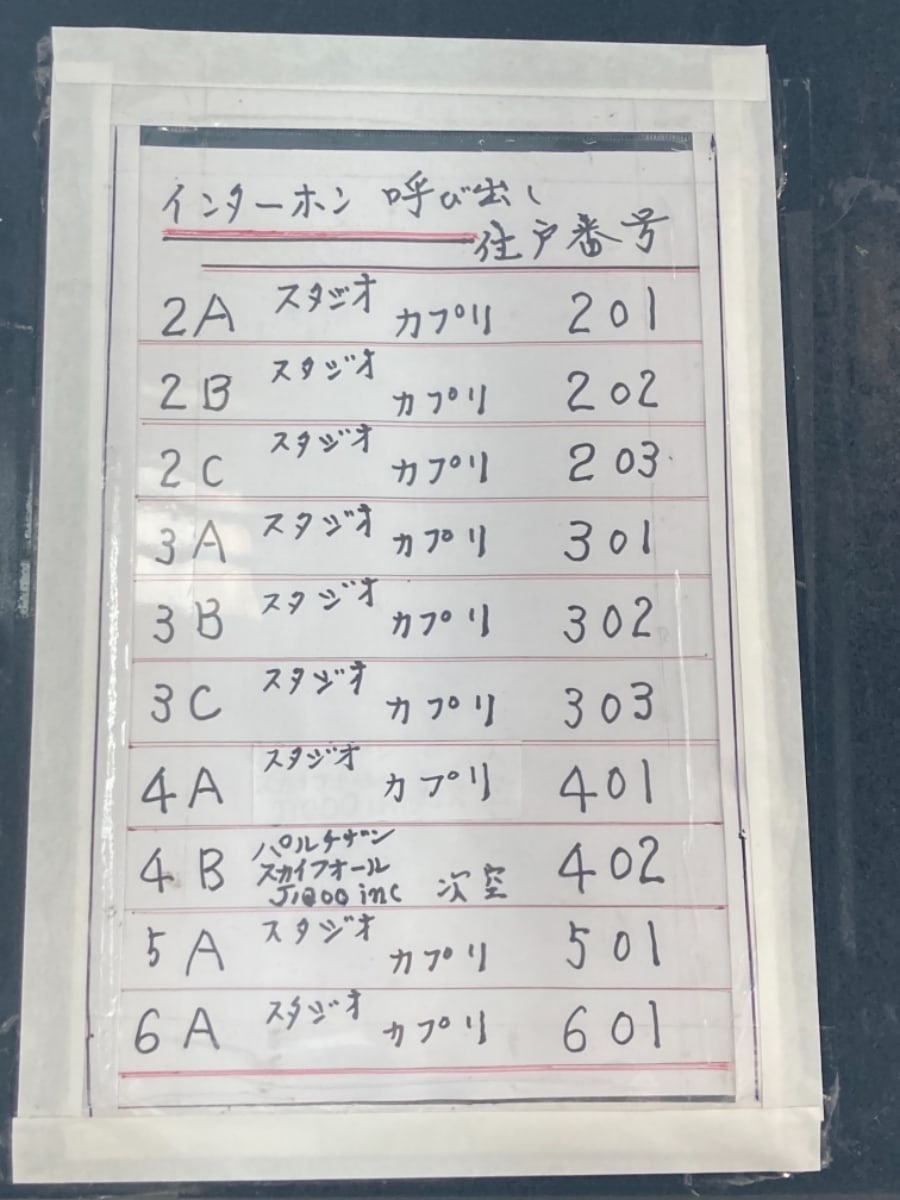 インターホン 呼び出し
住戸番号
2A スタジオ カプリ 201
2B スタジオ カプリ 202
2C スタジオ カプリ 203
3A スタジオ カプリ 301
3B スタジオ カプリ 302
3C スタジオ カプリ 303
4A スタジオ カプリ 401
パルチザン
4B スカイフォール 次空 402
inc
5A スタジオ カプリ 501
6A スタジオ カプリ 601